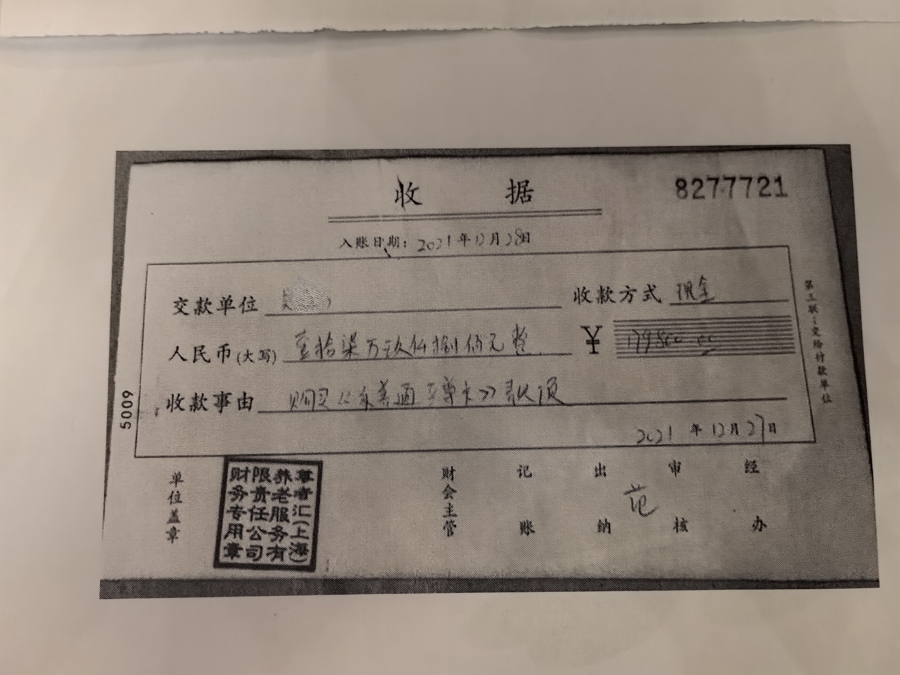 收据
8277721
入账日期：2021年12月28日
交款单位
收款方式 现金
人民币(大写) 壹拾柒万玖仟捌佰元整
￥ 179800.00
收款事由 购买 养通至尊卡 款项
2021年12月27日
第三联：交给付款单位
5009
单位盖章
尊者汇(上海)
养老服务有
限责任公司
财务专用章
财会主管
记账
出纳
范
审核
经办